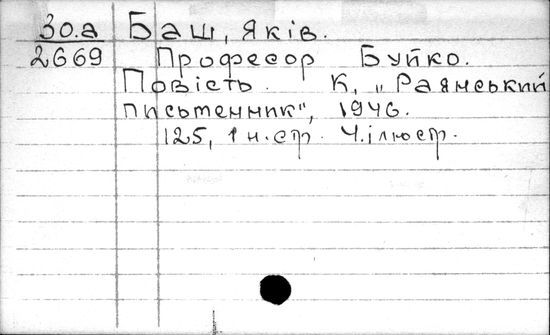 30.а Баш, Яків.
2669 Професор Буйко.
Повість. К, „Радянський
письменник", 1946.
125, 1 н.стр. Ч.ілюстр.